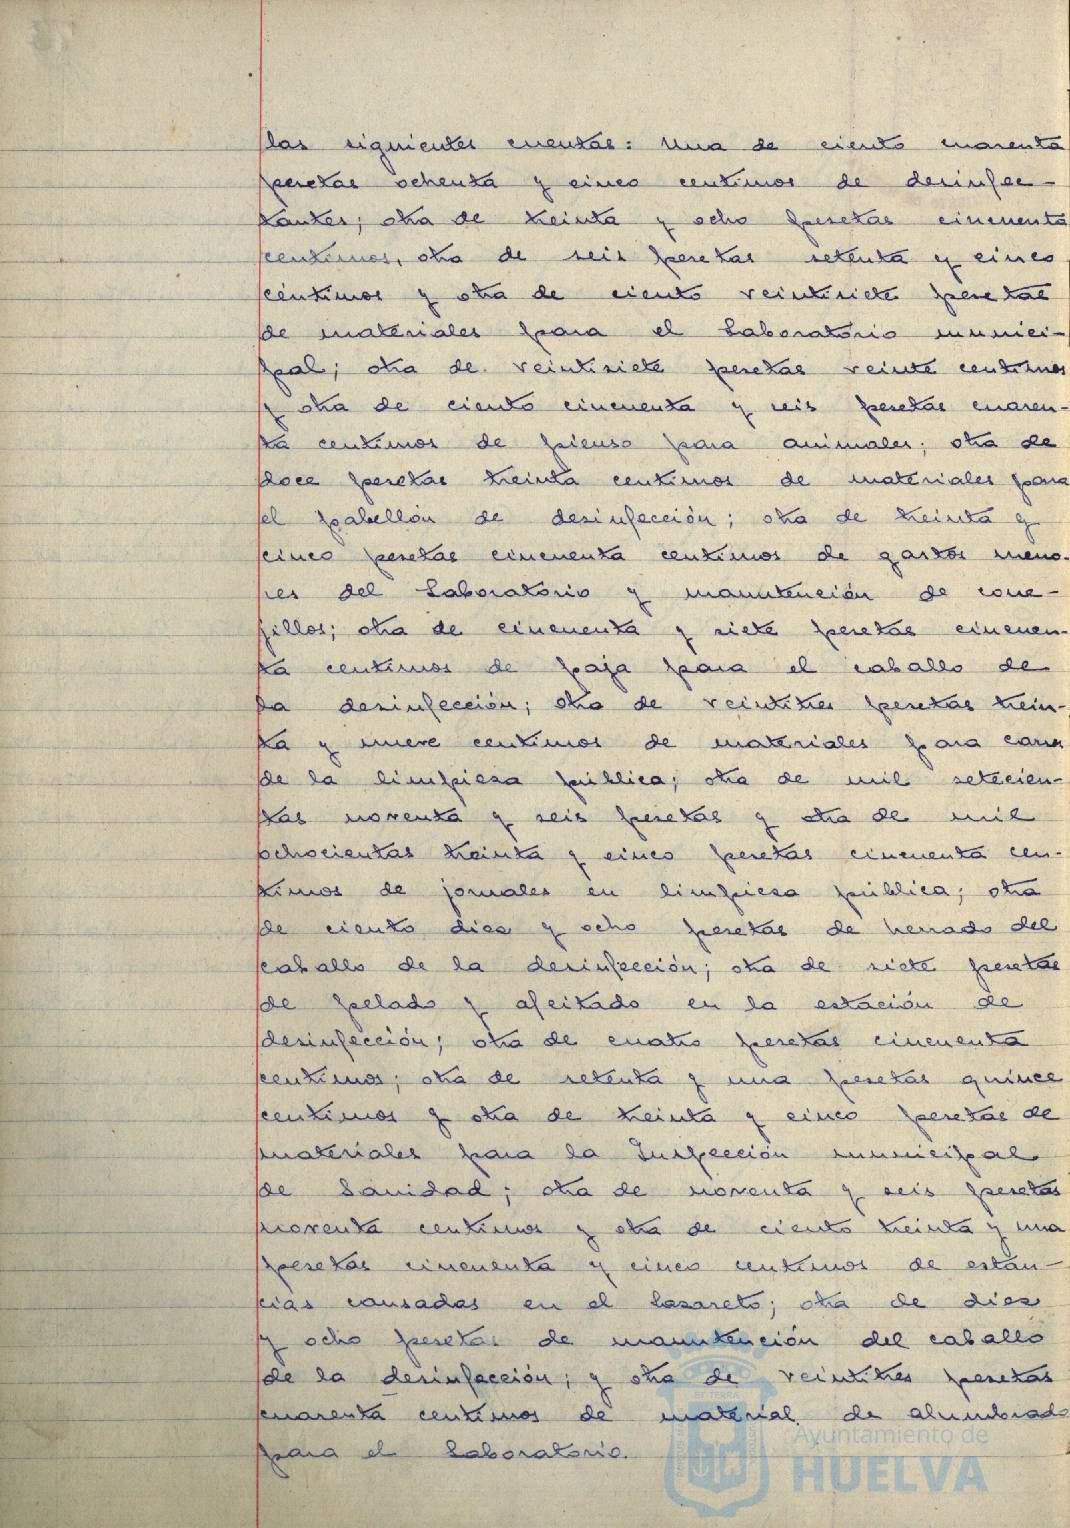 las siguientes cuentas: Una de ciento cuarenta
pesetas ochenta y cinco centimos de desinfec-
tantes; otra de treinta y ocho pesetas cincuenta
centimos, otra de seis pesetas setenta y cinco
céntimos y otra de ciento veintisiete pesetas
de materiales para el Laboratorio munici-
pal; otra de veintisiete pesetas veinte centimos
y otra de ciento cincuenta y seis pesetas cuaren-
ta centimos de pienso para animales; otra de
doce pesetas treinta centimos de materiales para
el pabellón de desinfección; otra de treinta y
cinco pesetas cincuenta centimos de gastos meno-
res del Laboratorio y manutención de cone-
jillos; otra de cincuenta y siete pesetas cincuen-
ta centimos de paja para el caballo de
la desinfección; otra de veintitres pesetas trein-
ta y nueve centimos de materiales para carros
de la limpiesa pública; otra de mil setecien-
tas noventa y seis pesetas y otra de mil
ochocientas treinta y cinco pesetas cincuenta cen-
timos de jornales en limpiesa pública; otra
de ciento dies y ocho pesetas de herrado del
caballo de la desinfección; otra de siete pesetas
de pelado y afeitado en la estación de
desinfección; otra de cuatro pesetas cincuenta
centimos; otra de setenta y una pesetas quince
centimos y otra de treinta y cinco pesetas de
materiales para la Inspección municipal
de Sanidad; otra de noventa y seis pesetas
noventa centimos y otra de ciento treinta y una
pesetas cincuenta y cinco centimos de están-
cias causadas en el Lasareto; otra de dies
y ocho pesetas de manutención del caballo
de la desinfección; y otra de veintitres pesetas
cuarenta centimos de material de alumbrado
para el Laboratorio.
Ayuntamiento de
HUELVA